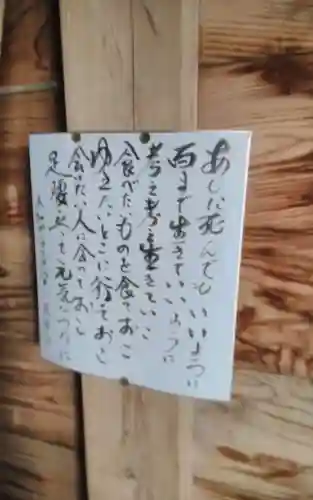 あした死んでもいいように
百まで生きていいように
考え考え生きていこ
食べたいものを食っておこ
ゆきたいとこに行っておこ
会いたい人に会っておこ
足腰立って元気なうちに